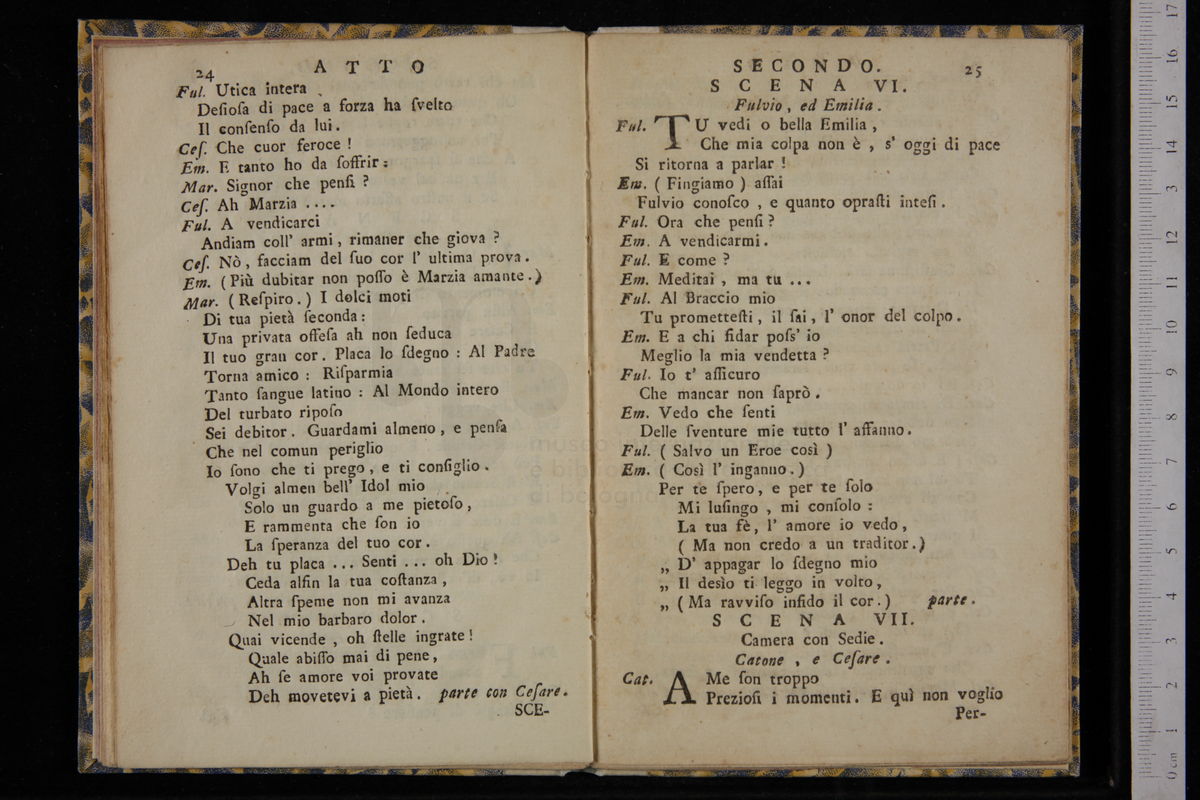 24 ATTO
Ful. Utica intera
Deſioſa di pace a forza ha ſvelto
Il conſenſo da lui.
Ceſ. Che cuor feroce !
Em. E tanto ho da ſoffrir :
Mar. Signor che penſi ?
Ceſ. Ah Marzia ....
Ful. A vendicarci
Andiam coll' armi, rimaner che giova ?
Ceſ. Nò, facciam del ſuo cor l' ultima prova.
Em. (Più dubitar non poſſo è Marzia amante.)
Mar. (Reſpiro.) I dolci moti
Di tua pietà ſeconda :
Una privata offeſa ah non ſeduca
Il tuo gran cor. Placa lo ſdegno : Al Padre
Torna amico : Riſparmia
Tanto ſangue latino : Al Mondo intero
Del turbato ripoſo
Sei debitor. Guardami almeno, e penſa
Che nel comun periglio
Io ſono che ti prego, e ti conſiglio.
Volgi almen bell' Idol mio
Solo un guardo a me pietoſo,
E rammenta che ſon io
La ſperanza del tuo cor.
Deh tu placa ... Senti ... oh Dio !
Ceda alfin la tua coſtanza,
Altra ſpeme non mi avanza
Nel mio barbaro dolor.
Quai vicende, oh ſtelle ingrate !
Quale abiſſo mai di pene,
Ah ſe amore voi provate
Deh movetevi a pietà. parte con Ceſare.
SCE-
SECONDO. 25
SCENA VI.
Fulvio, ed Emilia.
Ful. TU vedi o bella Emilia,
Che mia colpa non è, s' oggi di pace
Si ritorna a parlar !
Em. ( Fingiamo ) aſſai
Fulvio conoſco, e quanto opraſti inteſi.
Ful. Ora che penſi ?
Em. A vendicarmi.
Ful. E come ?
Em. Meditai, ma tu ...
Ful. Al Braccio mio
Tu prometteſti, il ſai, l' onor del colpo.
Em. E a chi fidar poſs' io
Meglio la mia vendetta ?
Ful. Io t' aſſicuro
Che mancar non ſaprò.
Em. Vedo che ſenti
Delle ſventure mie tutto l' affanno.
Ful. ( Salvo un Eroe così )
Em. ( Così l' inganno.)
Per te ſpero, e per te ſolo
Mi luſingo, mi conſolo :
La tua fè, l' amore io vedo,
( Ma non credo a un traditor.)
„ D' appagar lo ſdegno mio
„ Il desìo ti leggo in volto,
„ (Ma ravviſo infido il cor.) parte.
SCENA VII.
Camera con Sedie.
Catone, e Ceſare.
Cat. A Me ſon troppo
Prezioſi i momenti. E quì non voglio
Per-
museo
e biblioteca
di bologna
0 cm 1 2 3 4 5 6 7 8 9 10 11 12 13 14 15 16 17